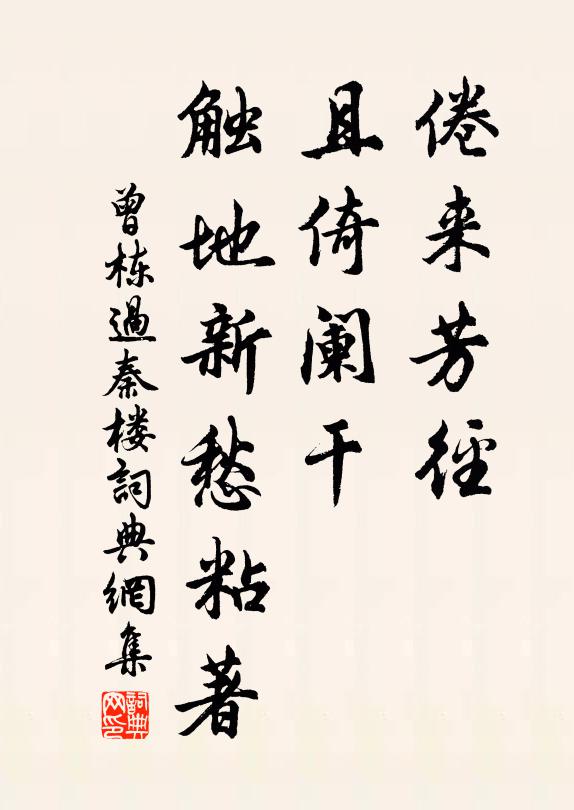 倦来芳径
且倚阑干
触地新愁粘著
曾栋過秦楼詞典網集
詞典网印